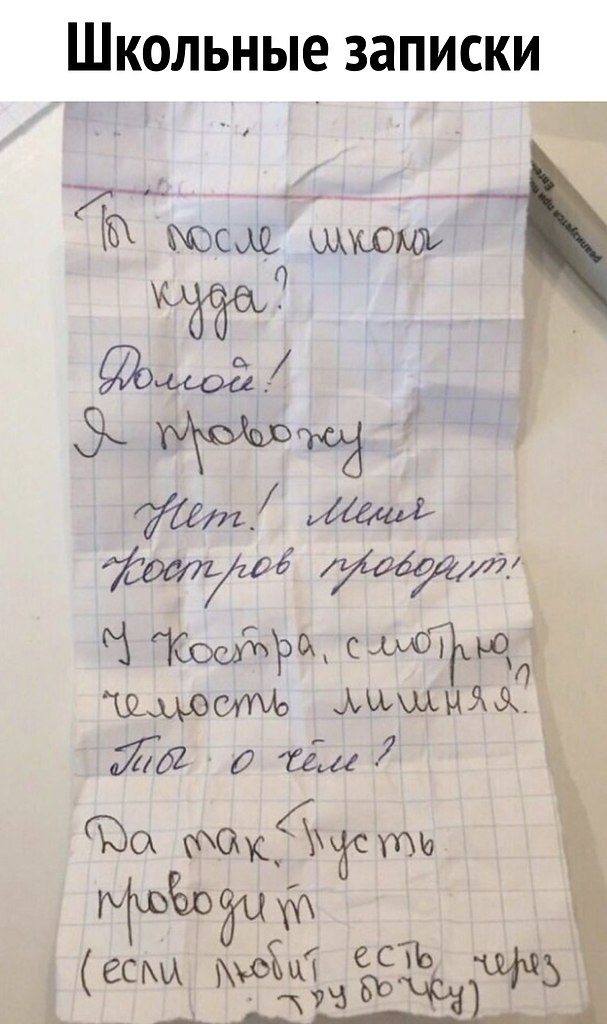 Школьные записки
реализуется при по
Евген
Ты после школы
куда?
Домой!
Я провожу
Нет! Меня
Костров проводит!
У Костра, смотрю,
челюсть лишняя?
Ты о чём?
Да так. Пусть
проводит
(если любит есть через
трубочку)